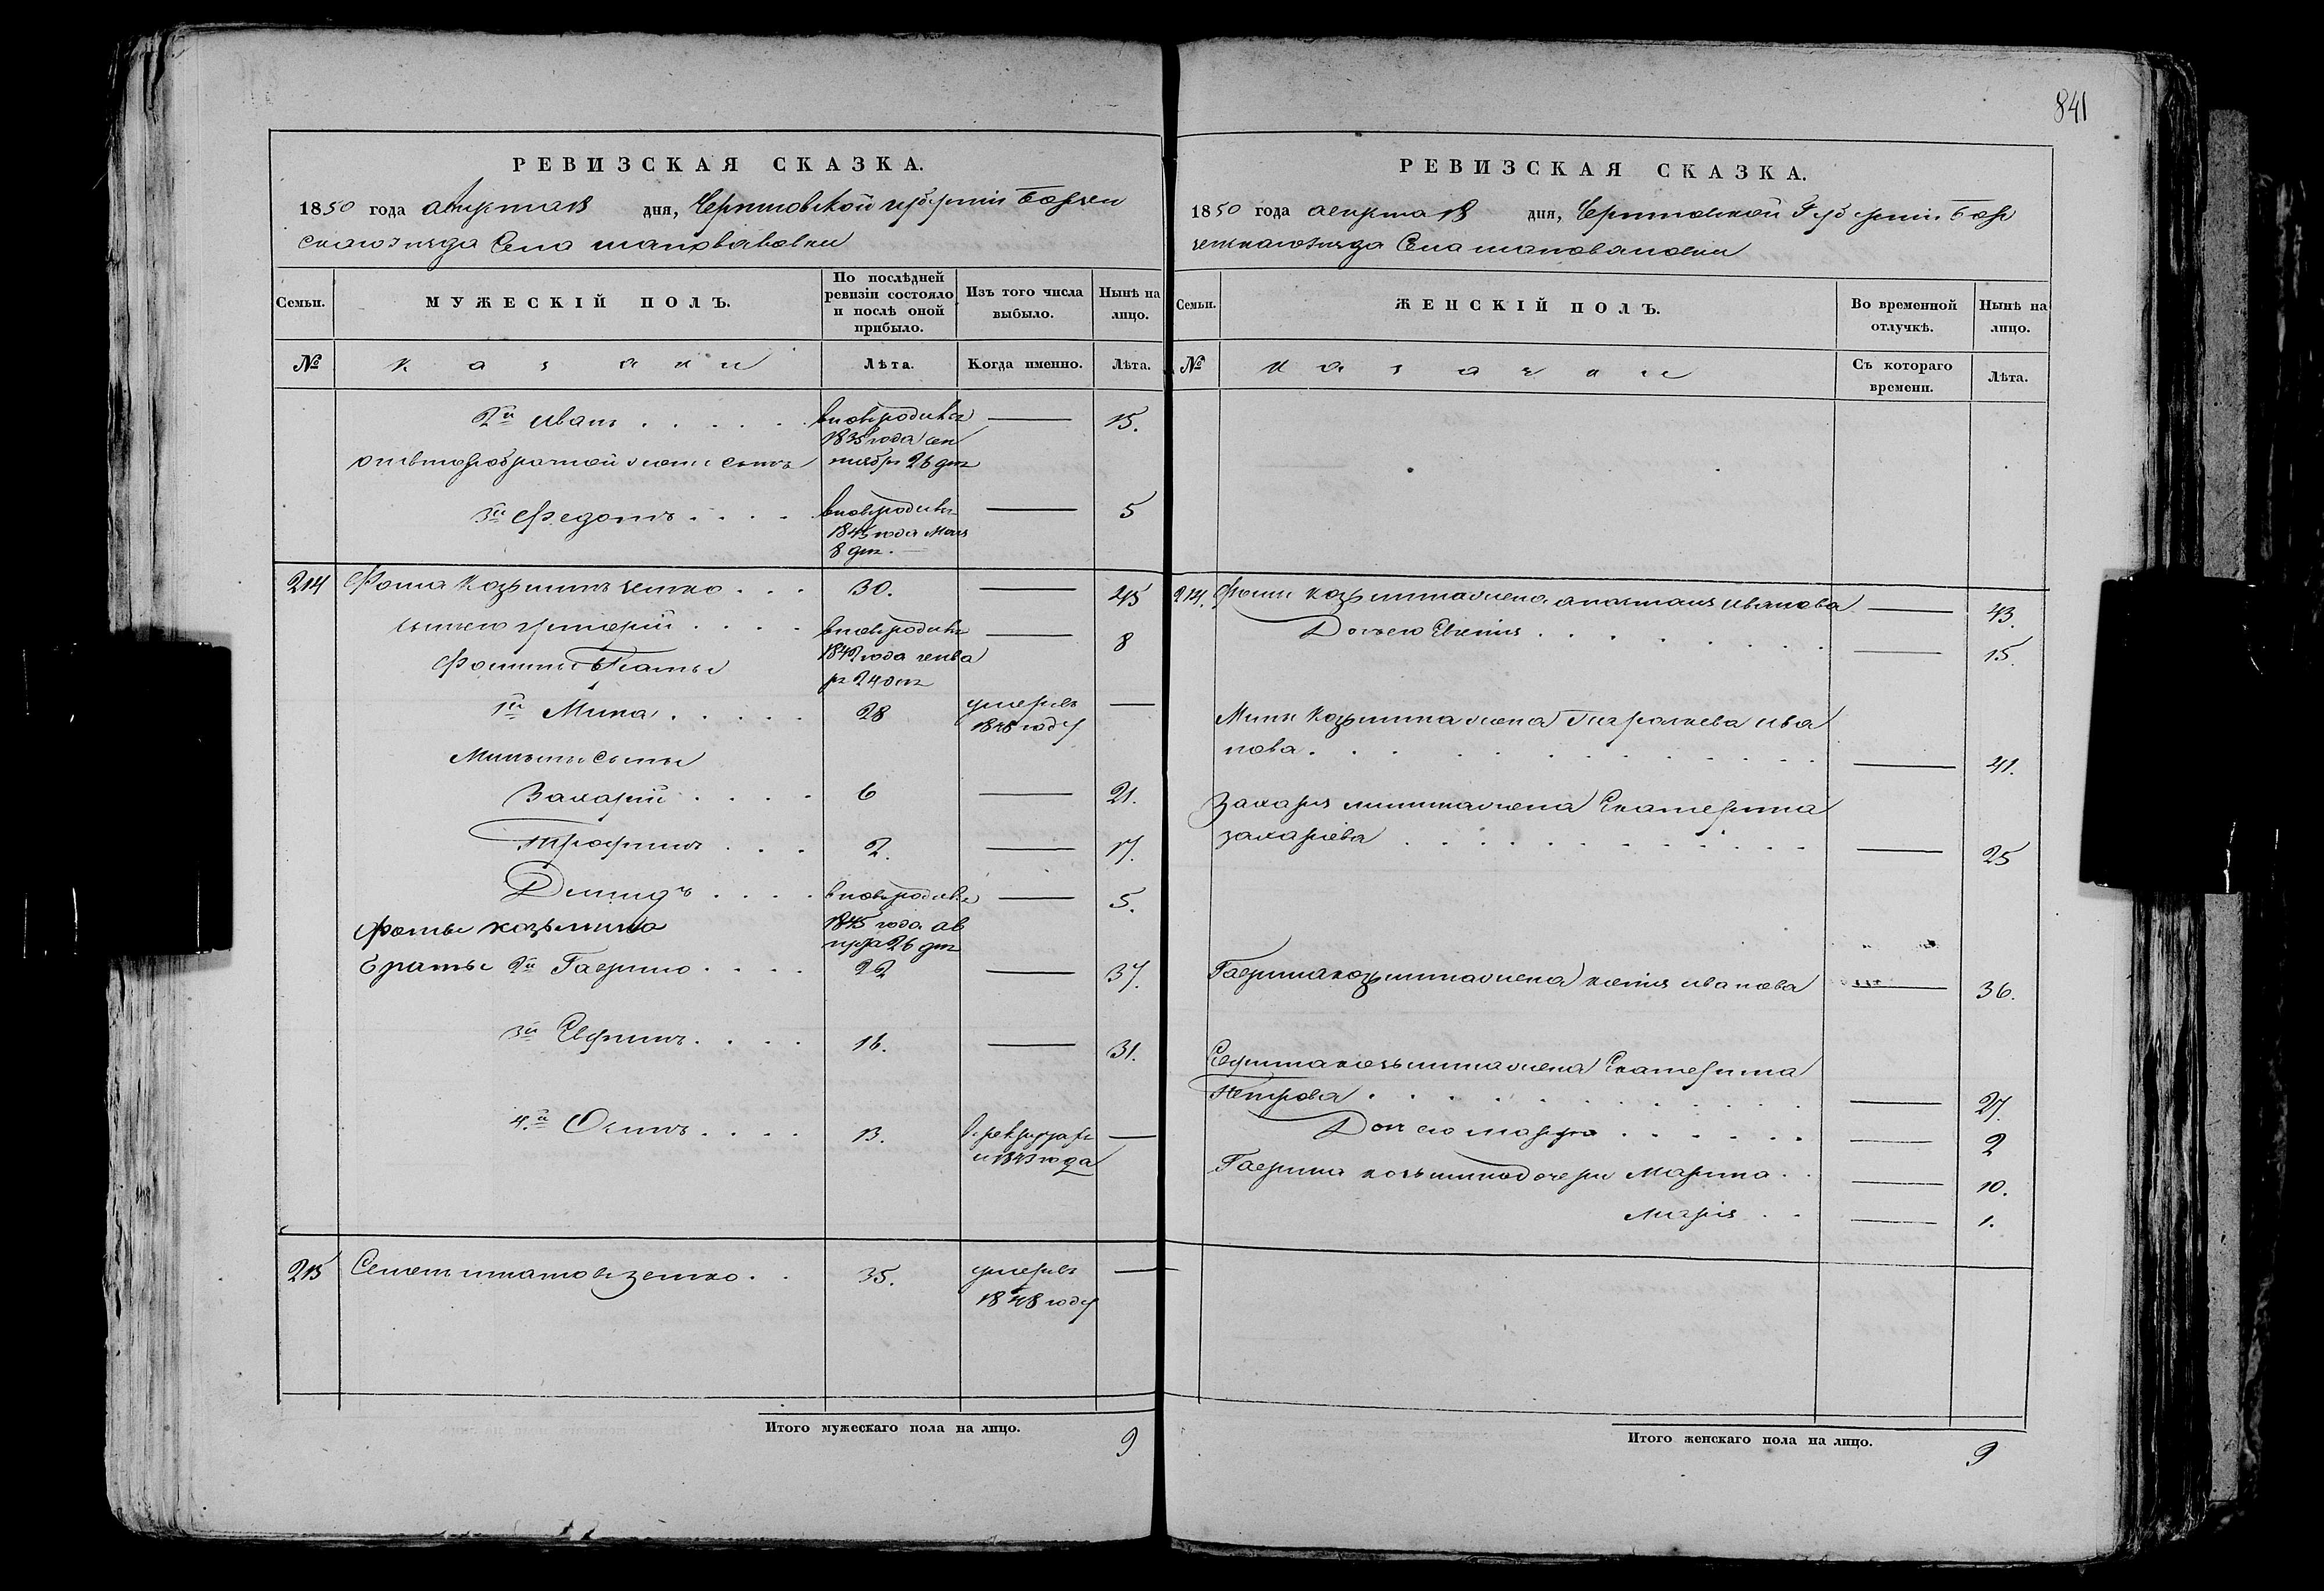 841
РЕВИЗСКАЯ СКАЗКА.
1850 года августа 18 дня, Черниговской губерніи Борзен
скаго уезда Села шаповаловки
Семьи. МУЖЕСКІЙ ПОЛЪ. По послѣдней ревизіи состояло и послѣ оной прибыло. Изъ того числа выбыло. Нынѣ на лицо.
№ казаки Лѣта. Когда именно. Лѣта.
2й Иванъ вновьродивс 15.
1835 года сен
отвторобрачной жены сынъ тября 26 дня
3й Федотъ вновьродивс 5
1845 года
8 дня
214 Фома Козьминъ 30. 45
сынъ его Григорій вновьродивс 8
1842 года генва
Фомины Браты ря 24 дня
1й Мина 28 умеръ въ
1848 году
Минины сыны
Захарій 6 21.
Трофимъ 2. 17.
Демидъ вновьродивс 5.
Фомы козьмина 1845 года ав
густа 26 дня
браты 2й Гаврило 22 37.
3й Евфимъ 16. 31.
4й Осипъ 13. в рекрутах
1843 года
215 Семен 35. умеръ въ
1848 году
Итого мужескаго пола на лицо. 9
РЕВИЗСКАЯ СКАЗКА.
1850 года августа 18 дня, Черниговской Губерніи Бор
зенскаго уезда Села шаповаловки
Семьи. ЖЕНСКІЙ ПОЛЪ. Во временной отлучкѣ. Нынѣ на лицо.
№ казачки Съ котораго времени. Лѣта.
214. Фомы козьмина жена анастасия иванова 43.
Дочь его Евгения 15.
Мины Козьмина жена Параскева ива
нова 41.
Захария минина жена Екатерина
захариева 25
Гаврила козьмина жена ксения иванова 36.
Евфима козьмина жена Екатерина
Петрова 27.
Доч его марфа 2
Гаврила козьмина дочери Марина 10.
Мария 1.
Итого женскаго пола на лицо. 9